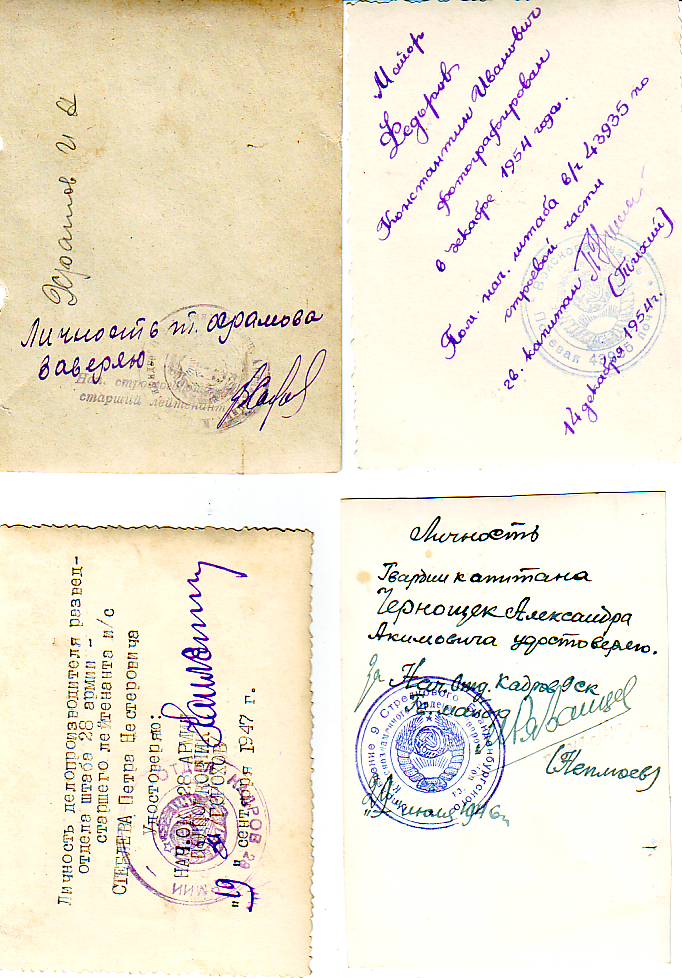 Храмов И А
Личность т. Храмова
заверяю
Нач. строевой
старший лейтенант
Майор
Федоров
Константин Иванович
фотографирован
в декабре 1954 года.
Пом. нач. штаба в/ч 43935 по
строевой части
гв. капитан
(Тихий)
14 декабря 1954г.
Полевая 43935 почта
Личность делопроизводителя развед-
отдела штаба 28 армии -
старшего лейтенанта и/с
СТЕЦЛЕРА Петра Нестеровича
Удостоверяю:
НАЧ.ОК 28 АРМИИ
ПОДПОЛКОВНИК
за
"19" сентября 1947 г.
ОТДЕЛ КАДРОВ 28
АРМИИ
Личность
Гвардии капитана
Чернощек Александра
Акимовича удостоверяю.
За Нач отд. Кадров 9 ск
(Неплюев)
Управление 9 Стрелкового Бранденбургского
Краснознаменного ордена Суворова
1946г